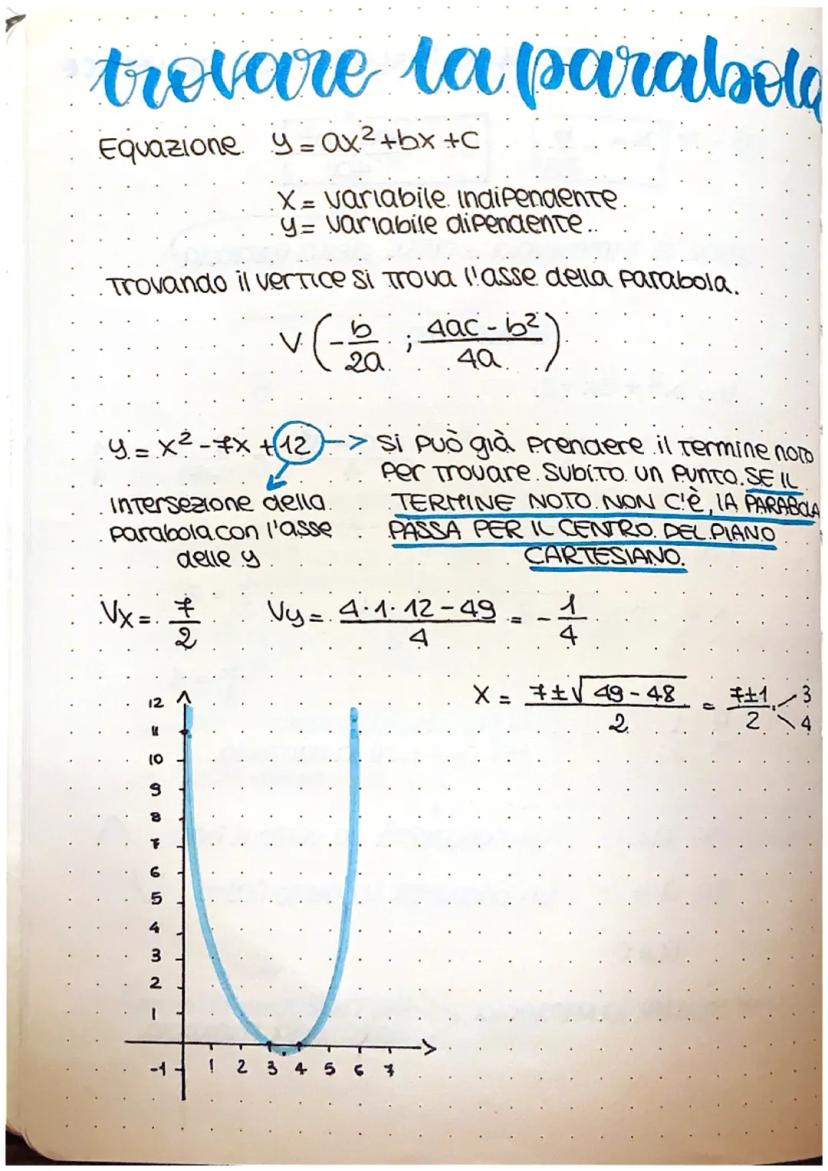 trovare la parabola
Equazione y = ax² + bx + c
x = variabile indipendente.
y = variabile dipendente..
Trovando il vertice si trova l'asse della parabola.
V (-b/2a ; (4ac - b²)/4a)
y = x² - 7x + 12 -> si può già prendere il termine noto
per trovare subito un punto. SE IL
TERMINE NOTO NON C'È, LA PARABOLA
PASSA PER IL CENTRO DEL PIANO
CARTESIANO.
intersezione della
parabola con l'asse
delle y
Vx = 7/2 Vy = (4·1·12 - 49)/4 = - 1/4
x = (7 ± √(49 - 48))/2 = (7 ± 1)/2 3
4
12
11
10
9
8
7
6
5
4
3
2
1
-1 1 2 3 4 5 6 7